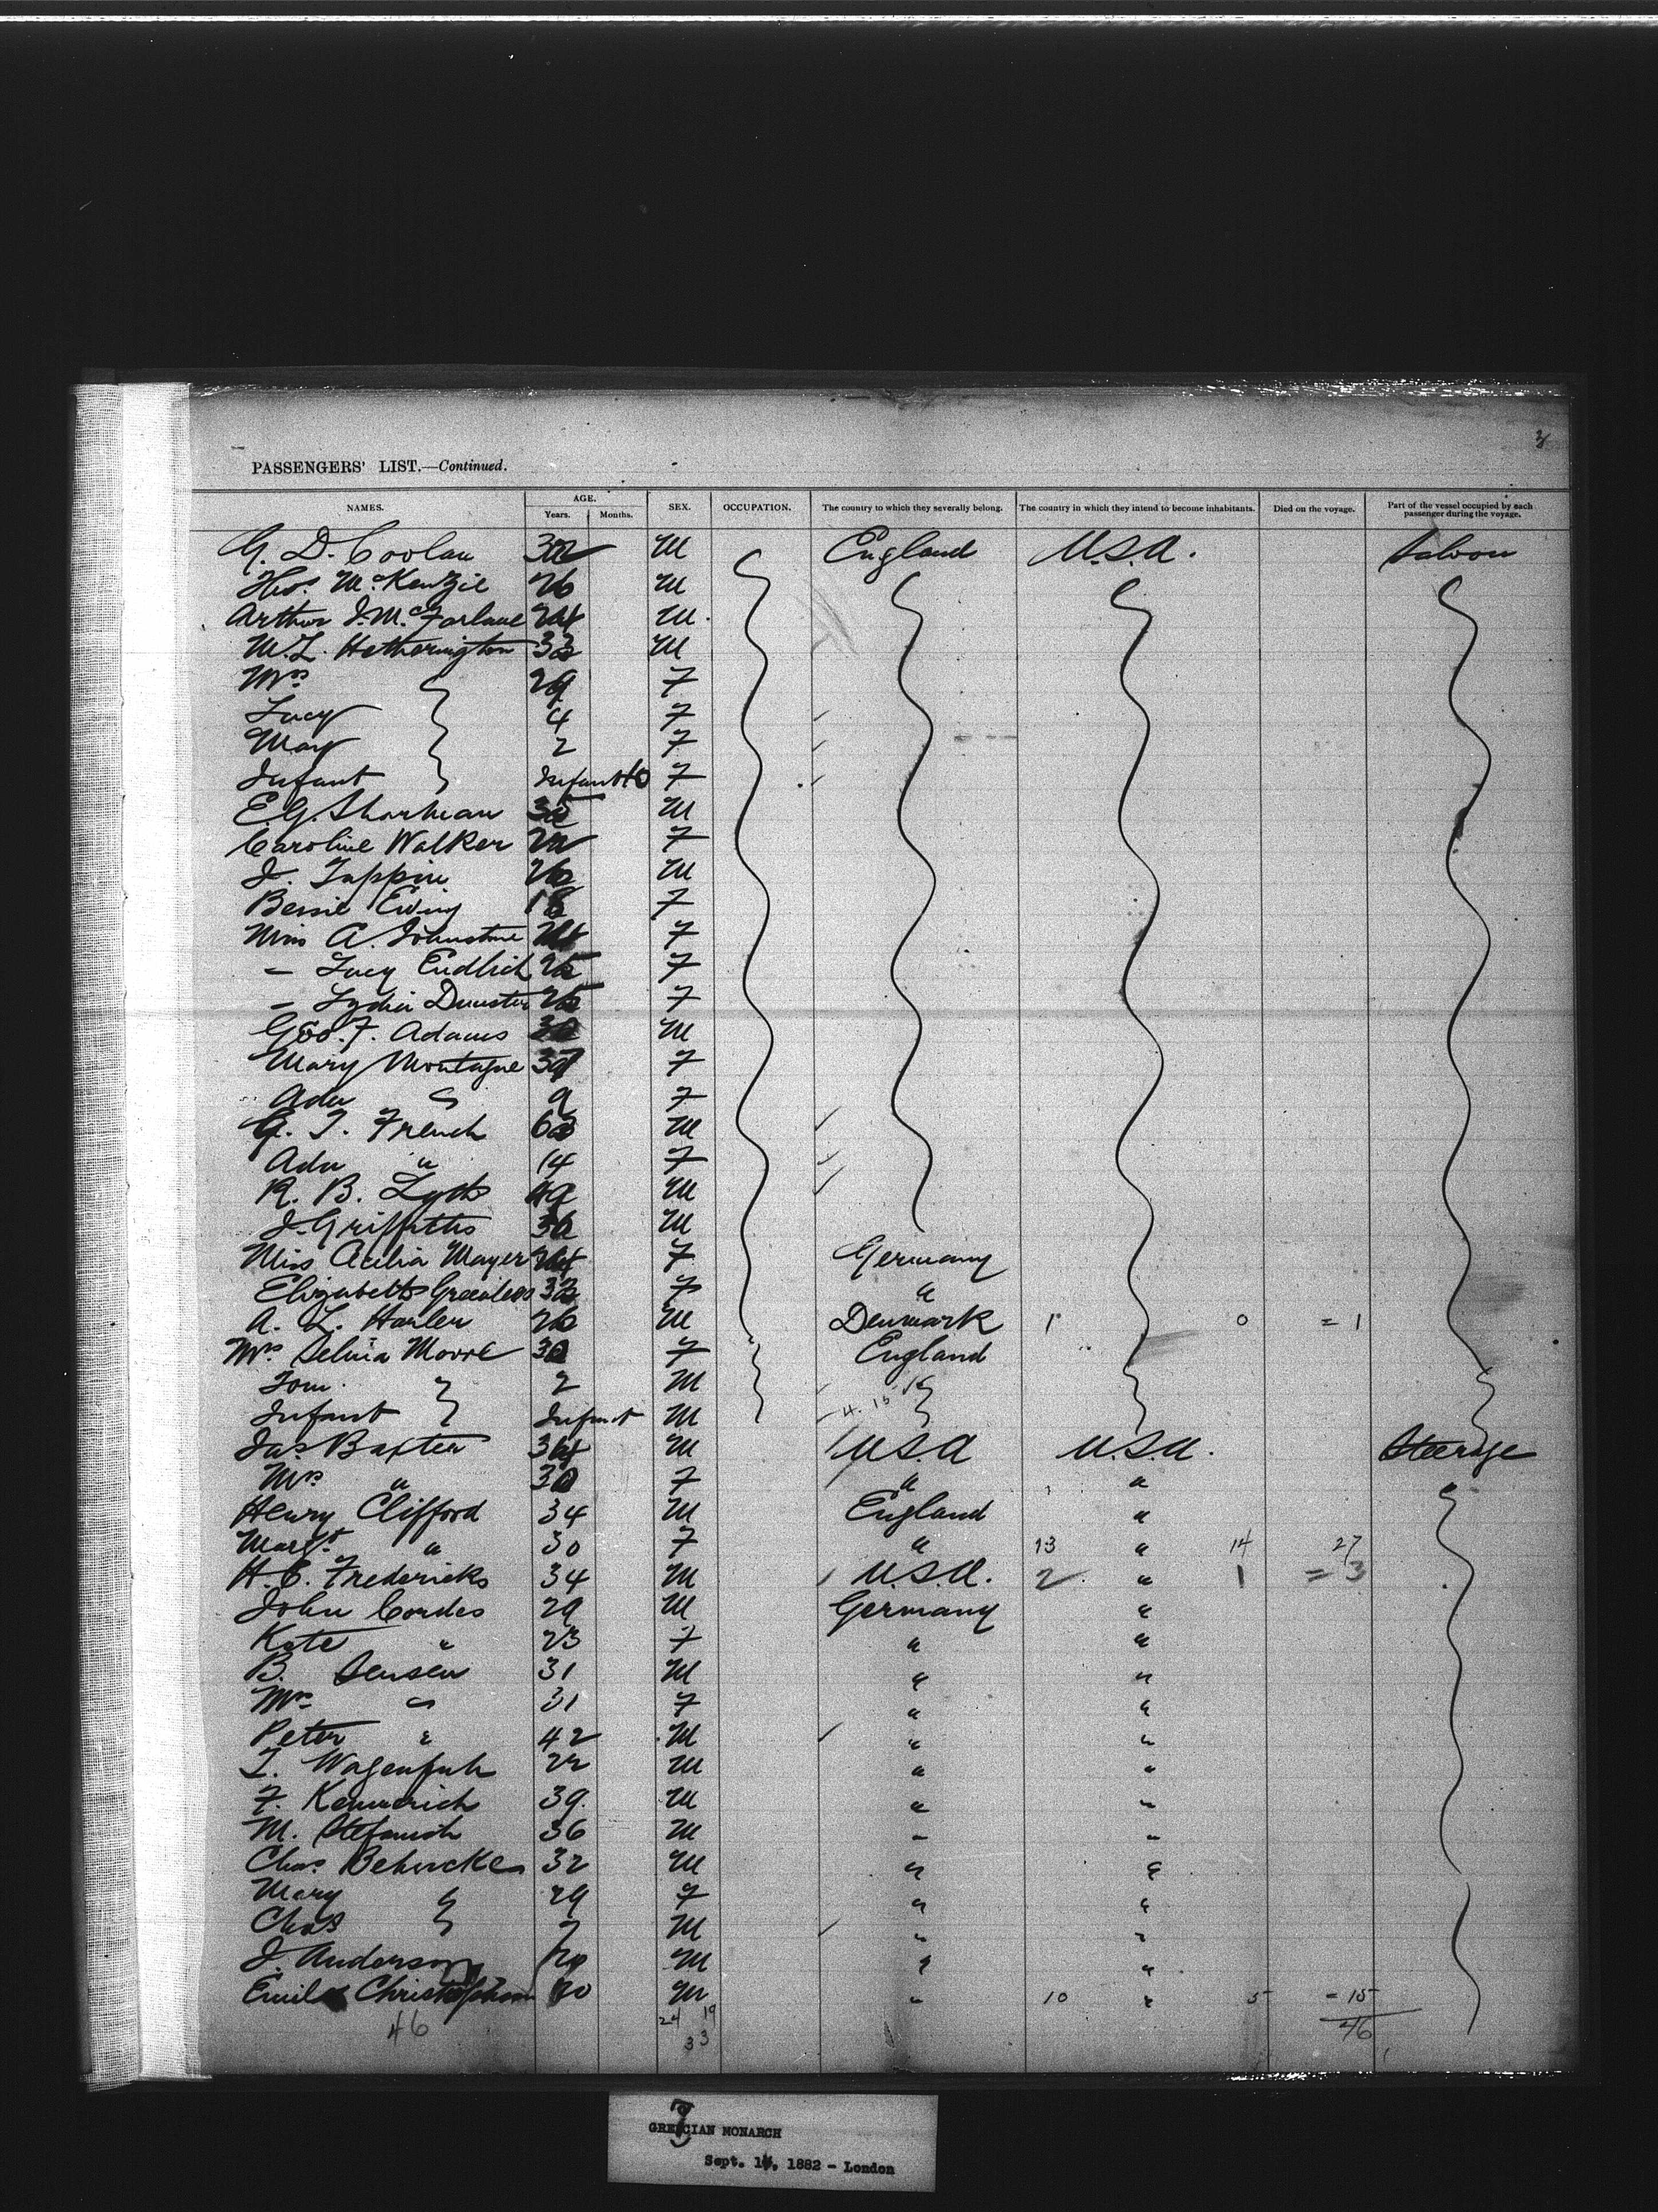 3
PASSENGERS' LIST.—Continued.
NAMES. AGE. Years. Months. SEX. OCCUPATION. The country to which they severally belong. The country in which they intend to become inhabitants. Died on the voyage. Part of the vessel occupied by each passenger during the voyage.
G. D. Coolan 32 M England U.S.A. Saloon
Thos. McKenzie 26 M
Arthur J. McFarlane 24 M
M. L. Hetherington 33 M
Mrs 29 F
Lucy 4 F
May 2 F
Infant Infant 10 F
E. G. Sharman 35 M
Caroline Walker 22 F
J. Tappin 26 M
Bessie Ewing 18 F
Miss A. Johnstone 24 F
– Lucy Endlich 25 F
– Lydia Dunster 25 F
Geo. F. Adams 30 M
Mary Montague 37 F
Ada 9 F
G. T. French 63 M
Ada " 14 F
R. B. M
J. Griffiths 36 M
Miss Cecilia Mayer 24 F Germany
Elizabeth 33 F "
A. L. Harler 26 M Denmark 1 0 = 1
Mrs. Selina Moore 30 F England
Tom 2 M
Infant Infant M
Jas Baxter 34 M U.S.A U.S.A. Steerage
Mrs " 30 F " "
Henry Clifford 34 M England "
Margt " 30 F " 13 " 14 27
H. C. Fredericks 34 M U.S.A. 2 " 1 = 3
John Cordes 29 M Germany "
Kate " 23 F " "
B. Jensen 31 M " "
Mrs " 31 F " "
Peter " 42 M " "
T. Wagenfuh 22 M " "
F. Kemmerich 39 M " "
M. 36 M " "
Chas Behncke 32 M " "
Mary 29 F " "
Chas 7 M " "
J. Anderson 20 M " "
Emil 20 M " 10 " 5 = 15
46 24 19 46
33
GRECIAN MONARCH
Sept. 14, 1882 – London